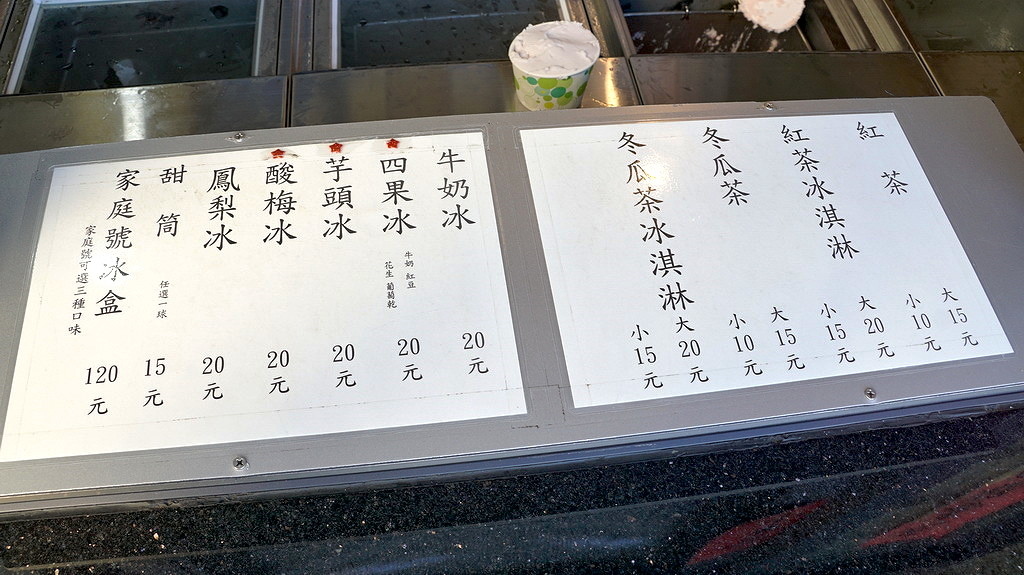 紅茶
大15元
小10元
紅茶冰淇淋
大20元
小15元
冬瓜茶
大15元
小10元
冬瓜茶冰淇淋
大20元
小15元
牛奶冰
20元
四果冰
牛奶 紅豆
花生 葡萄乾
20元
芋頭冰
20元
酸梅冰
20元
鳳梨冰
20元
甜筒
任選一球
15元
家庭號冰盒
家庭號可選三種口味
120元